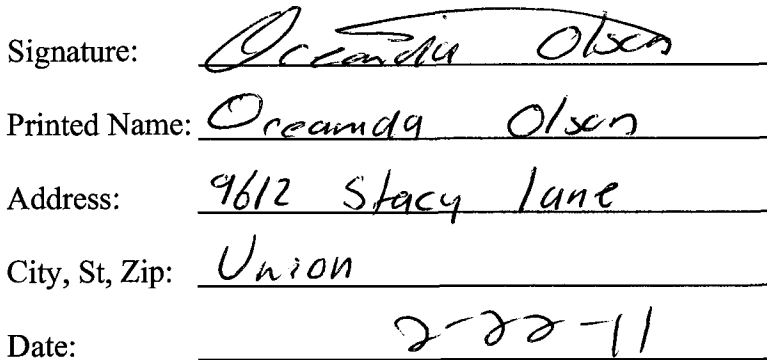 Signature: Oceanda Olson
Printed Name: Oceanda Olson
Address: 9612 Stacy Lane
City, St, Zip: Union
Date: 2-22-11